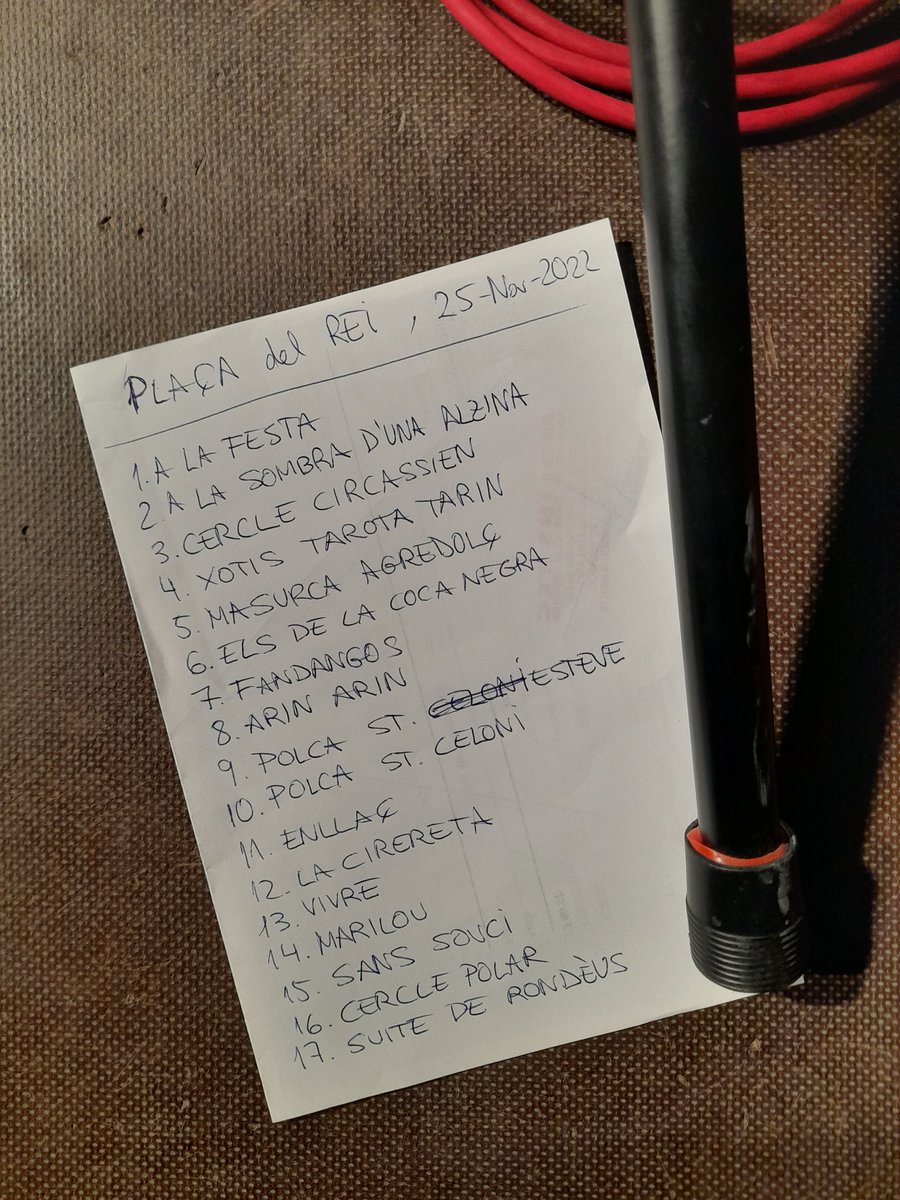 PLAÇA del REi, 25-Nov-2022
1. A LA FESTA
2. A LA SOMBRA D'UNA ALZINA
3. CERCLE CIRCASSIEN
4. XOTIS TAROTA TARIN
5. MASURCA AGREDOLÇ
6. ELS DE LA COCA NEGRA
7. FANDANGOS
8. ARIN ARIN
9. POLCA ST. CELONI ESTEVE
10. POLCA ST. CELONI
11. ENLLAÇ
12. LA CIRERETA
13. VIVRE
14. MARILOU
15. SANS SOUCI
16. CERCLE POLAR
17. SUITE DE RONDÈUS